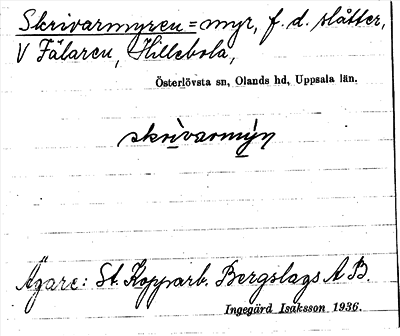 Skrivarmyren = myr, f. d. slåtter,
V Fälaren, Hillebola,
Österlövsta sn, Olands hd, Uppsala län.
skrìvarmy̲n
Ägare: St. Kopparb. Bergslags A B.
Ingegärd Isaksson 1936.